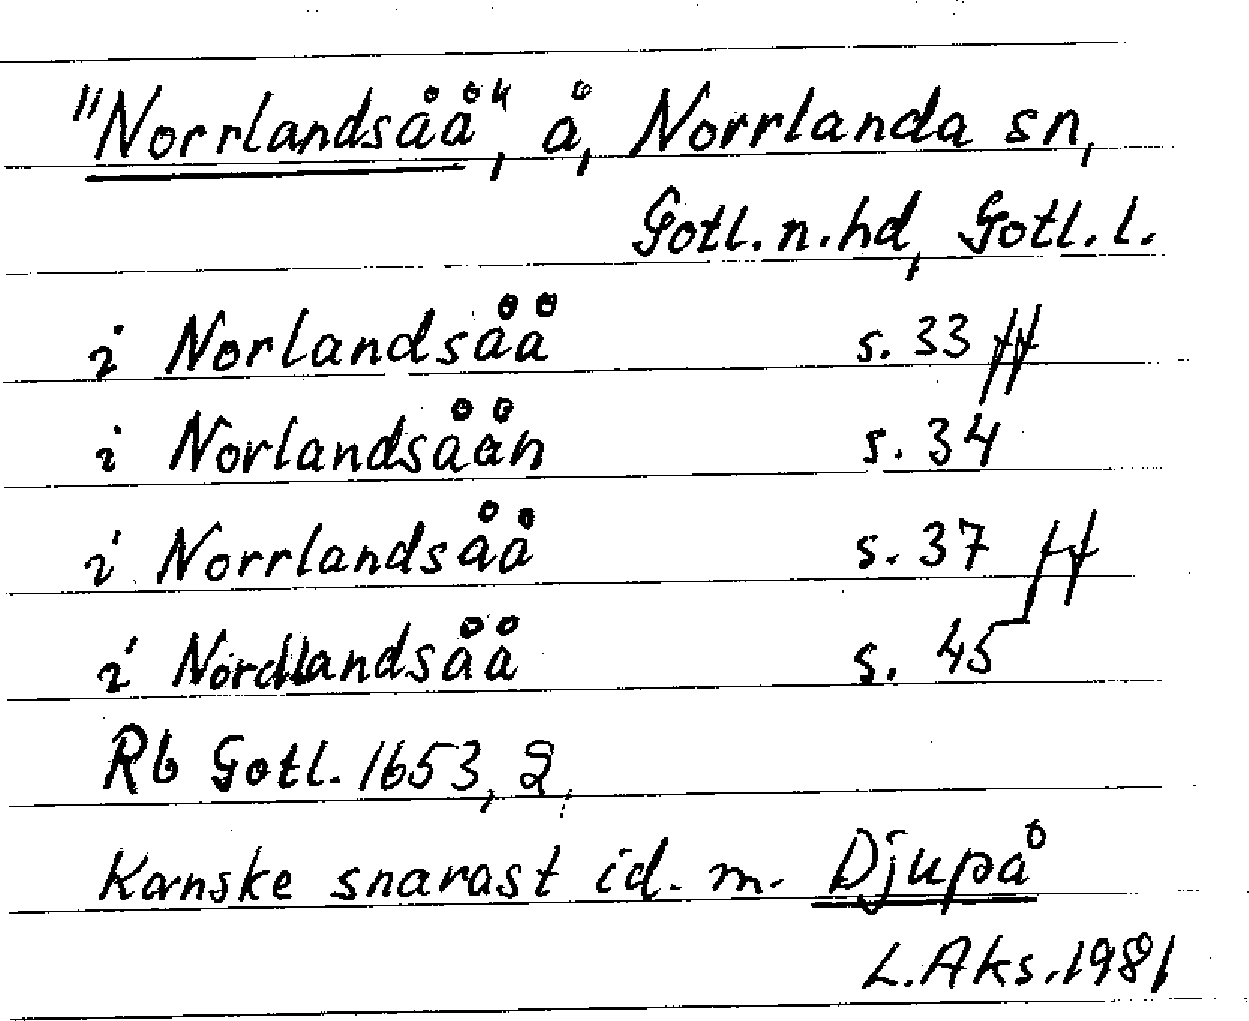 "Norrlandsåå", å, Norrlanda sn,
Gotl. n. hd, Gotl. l.
i Norlandsåå s. 33 ff
i Norlandsåån s. 34
i Norrlandsåå s. 37 ff
i Nordlandsåå s. 45
Rb Gotl. 1653, 2,
Kanske snarast id. m. Djupå
L. Aks. 1981